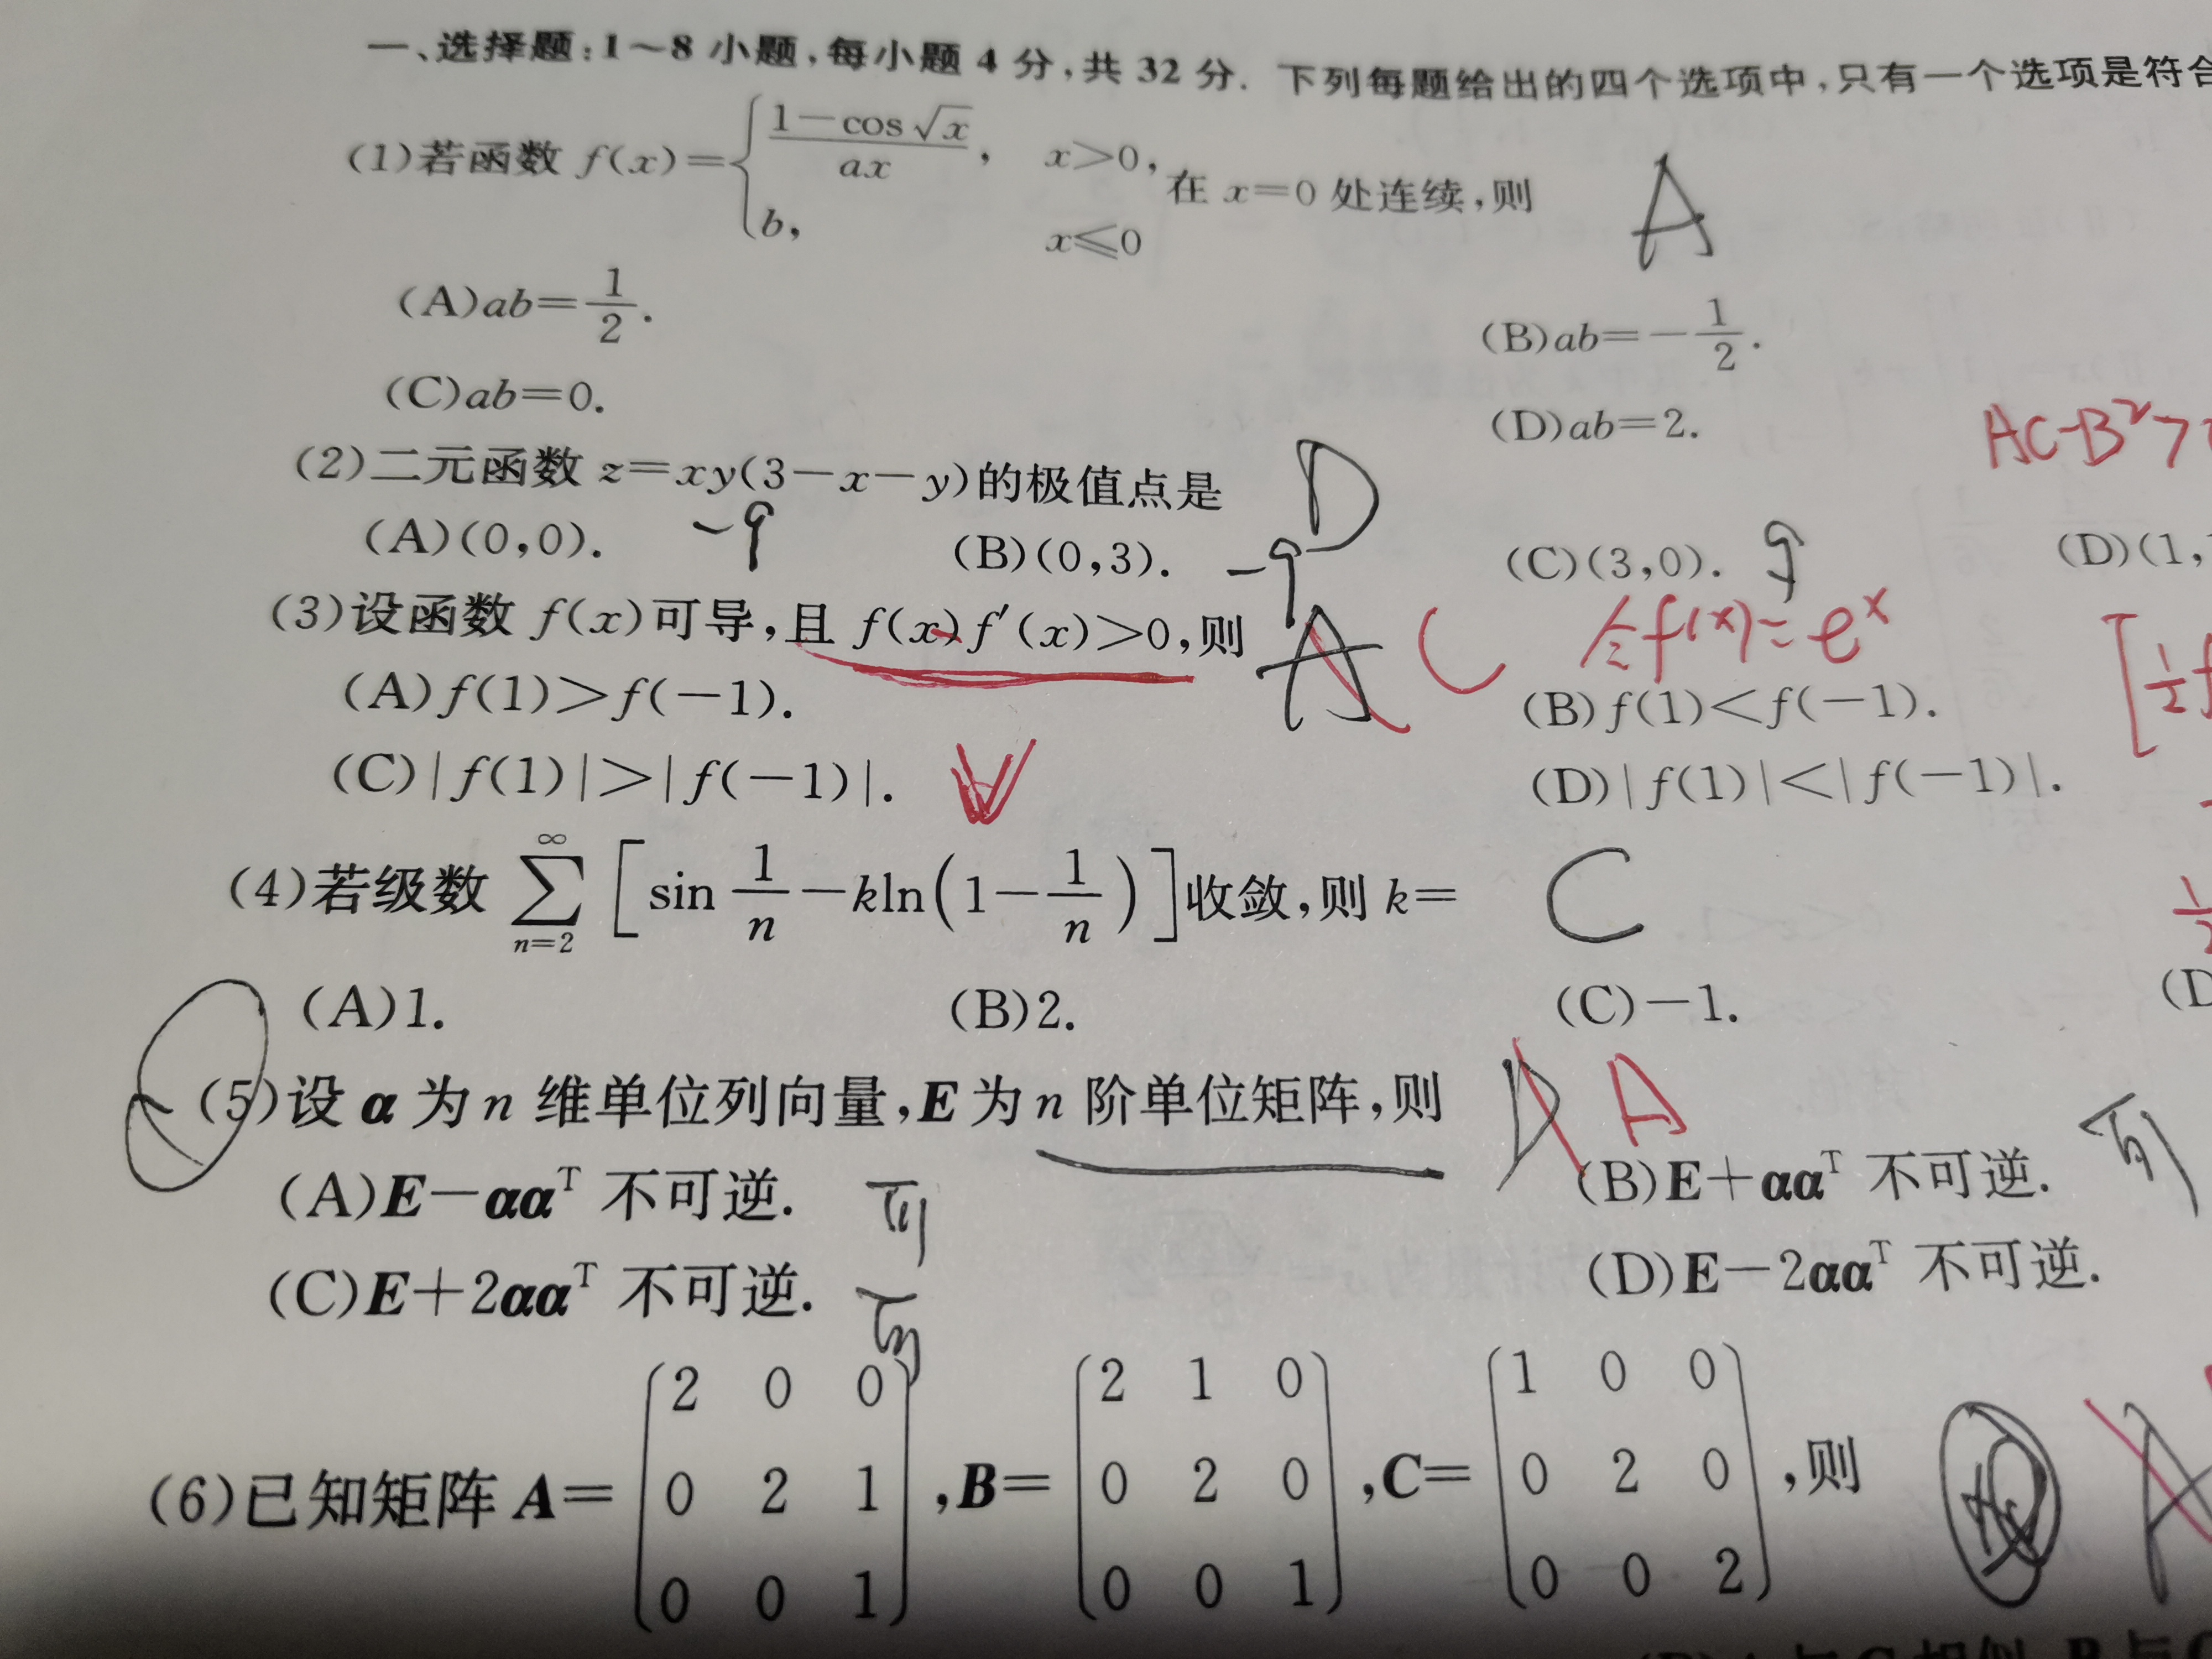 一、选择题:1～8 小题,每小题 4 分,共 32 分. 下列每题给出的四个选项中,只有一个选项是符合
(1)若函数 f(x)={ (1-cos√x)/(ax), x>0, b, x≤0 在 x=0 处连续,则 A
(A)ab=1/2. (B)ab=-1/2.
(C)ab=0. (D)ab=2.
AC-B²>
(2)二元函数 z=xy(3-x-y)的极值点是 D
(A)(0,0). -9 (B)(0,3). -9 (C)(3,0). 9 (D)(1,
(3)设函数 f(x)可导,且 f(x)f′(x)>0,则 A C 令f(x)=eˣ
[1/2 f
(A)f(1)>f(-1). (B)f(1)<f(-1).
(C)|f(1)|>|f(-1)|. (D)|f(1)|<|f(-1)|.
(4)若级数 ∑_{n=2}^{∞} [sin 1/n - kln(1-1/n)]收敛,则 k= C
1/2
(A)1. (B)2. (C)-1. (D
(5)设 α 为 n 维单位列向量,E 为 n 阶单位矩阵,则 D A
(A)E-ααᵀ 不可逆. 可 (B)E+ααᵀ 不可逆. 可
(C)E+2ααᵀ 不可逆. 可 (D)E-2ααᵀ 不可逆.
(6)已知矩阵 A=(2 0 0; 0 2 1; 0 0 1),B=(2 1 0; 0 2 0; 0 0 1),C=(1 0 0; 0 2 0; 0 0 2),则 A